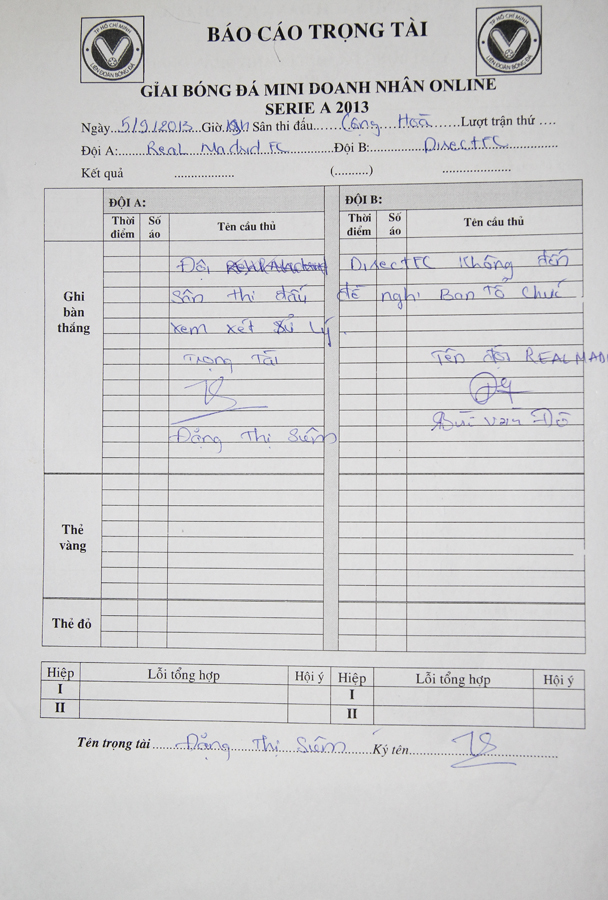 TP HỒ CHÍ MINH
LIÊN ĐOÀN BÓNG ĐÁ
BÁO CÁO TRỌNG TÀI
TP HỒ CHÍ MINH
LIÊN ĐOÀN BÓNG ĐÁ
GIẢI BÓNG ĐÁ MINI DOANH NHÂN ONLINE
SERIE A 2013
Ngày 5/9/2013 Giờ Sân thi đấu Cộng Hoà Lượt trận thứ ....
Đội A: Real Madrid FC Đội B: DirectFC
Kết quả .................. (..........) ....................
ĐỘI A: ĐỘI B:
Thời điểm Số áo Tên cầu thủ Thời điểm Số áo Tên cầu thủ
Ghi bàn thắng
Đội DirectFC Không đến
Sân thi đấu đề nghị Ban Tổ Chức
xem xét xử Lý.
Trọng Tài Tên đội REALMAD
Đặng Thị Siêm Bùi Văn
Thẻ vàng
Thẻ đỏ
Hiệp Lỗi tổng hợp Hội ý Hiệp Lỗi tổng hợp Hội ý
I I
II II
Tên trọng tài Đặng Thị Siêm Ký tên